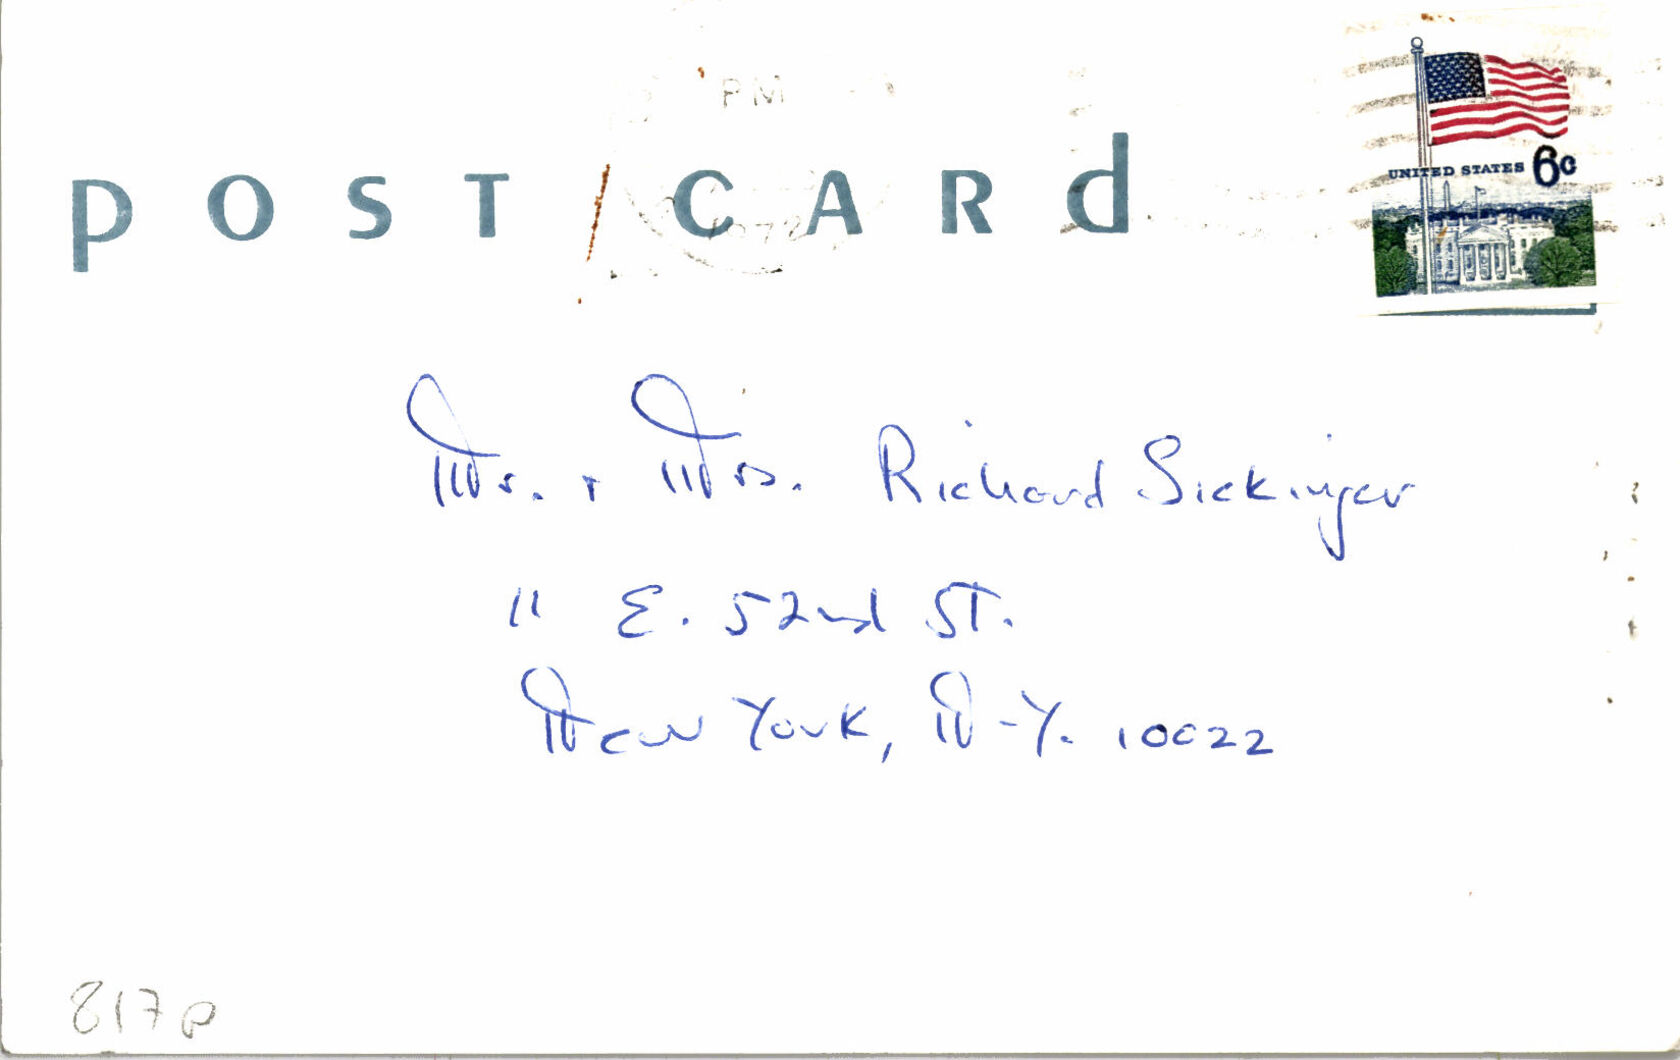 PM
pOST CARd
1972
UNITED STATES 6c
Mr. + Mrs. Richard Sickinger
11 E. 52nd St.
New York, N-Y. 10022
817p